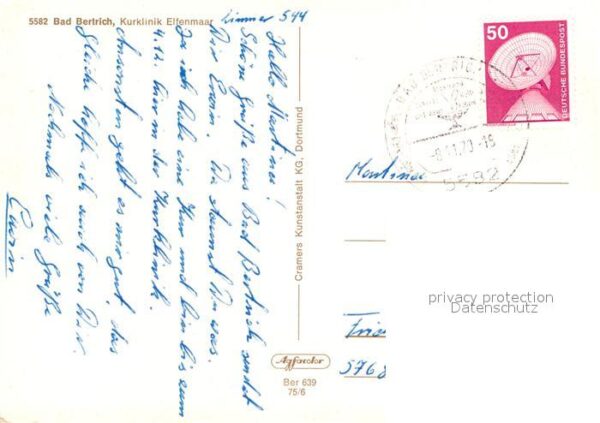 5582 Bad Bertrich, Kurklinik Elfenmaar
Zimmer 544
Hallo Martina!
Schöne Grüße aus Bad Bertrich sendet
Dir Erwin. Da staunst Du was.
Ja ich habe eine Kur und bin bis zum
4.12. hier in der Kurklinik.
Ansonsten geht es mir gut, das
gleiche hoffe ich auch von Dir.
Nochmals viele Grüße
Erwin
Cramers Kunstanstalt KG, Dortmund
Agfacolor
Ber 639
75/6
50
DEUTSCHE BUNDESPOST
5582
Martina
5768
privacy protection
Datenschutz